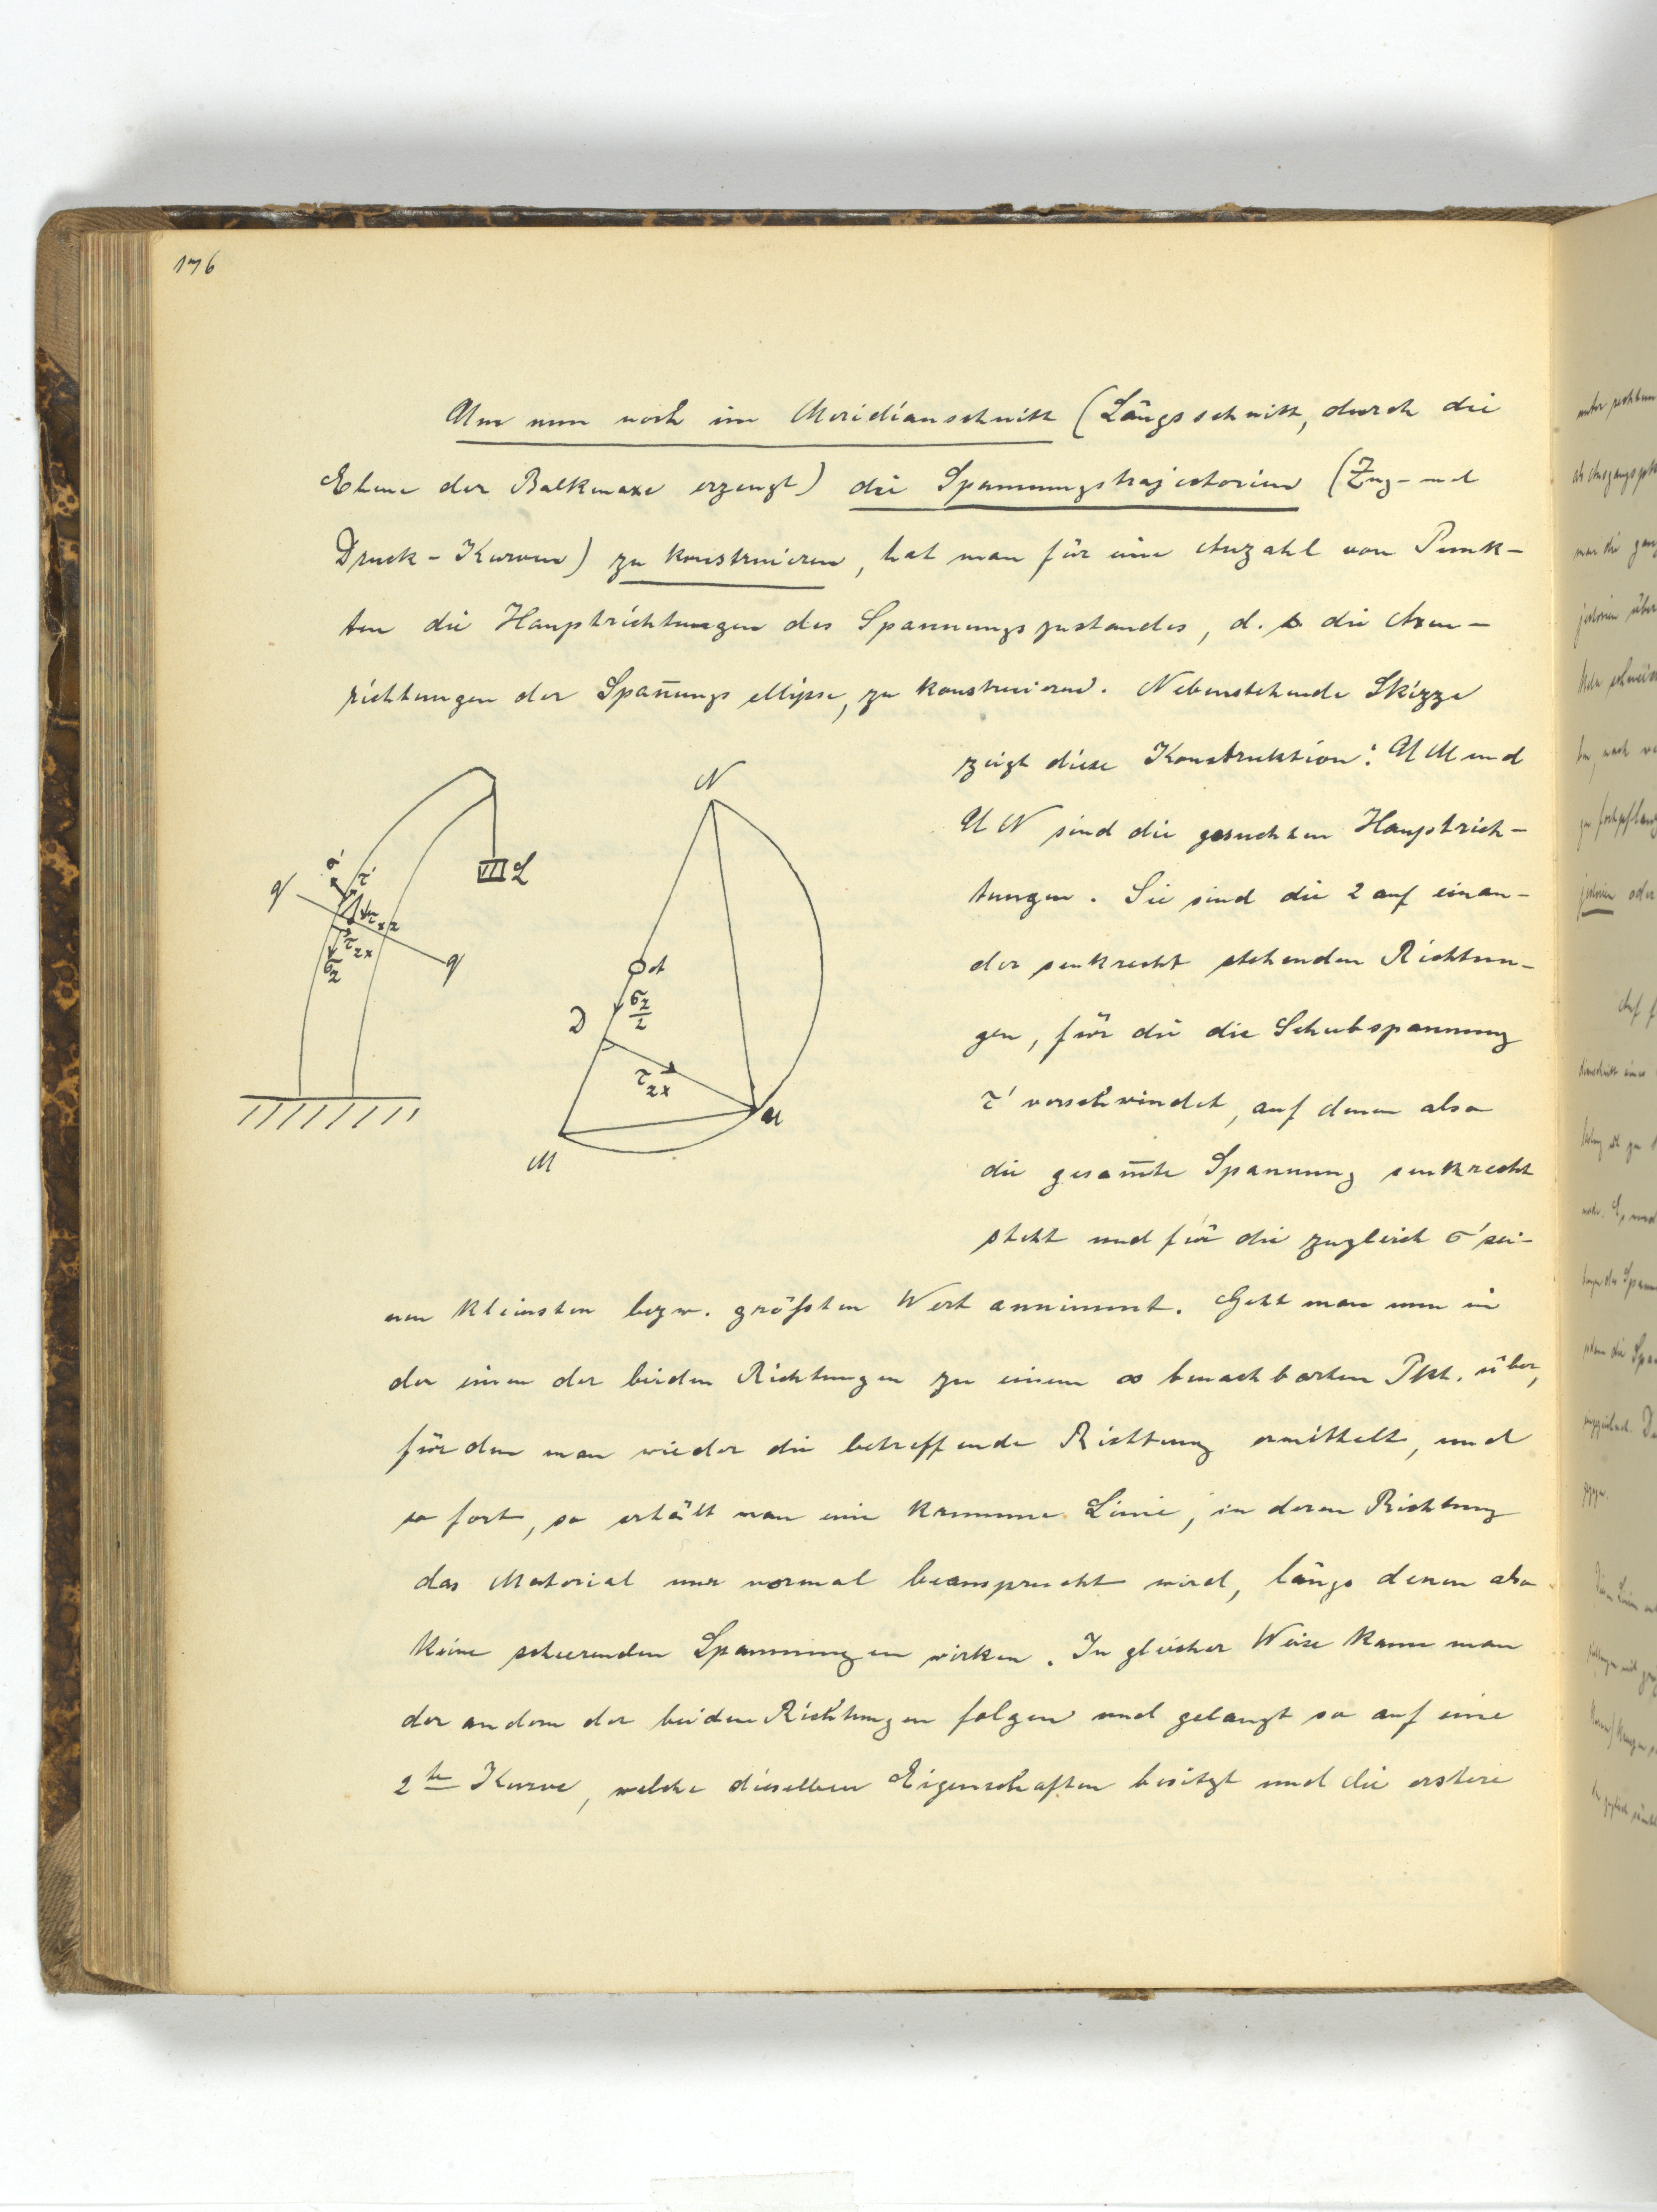 176
Um nun noch im Meridianschnitt (Längsschnitt, durch die
Ebene der Balkenaxe erzeugt) die Spannungstrajectorien (Zug- und
Druck-Kurven) zu konstruieren, hat man für eine Anzahl von Punk-
ten die Hauptrichtungen des Spannungszustandes, d. h die Axen-
richtungen der Span̄ungsellipse, zu konstruieren. Nebenstehende Skizze
zeigt diese Konstruktion: UM und
UN sind die gesuchten Hauptrich-
tungen. Sie sind die 2 auf einan-
der senkrecht stehenden Richtun-
gen, für die die Schubspannung
τ' verschwindet, auf denen also
die gesam̄te Spannung senkrecht
steht und für die zugleich σ' sei-
nen kleinsten bezw. größten Wert annimmt. Geht man nun in
der einen der beiden Richtungen zu einem ∞ benachbarten Pkt. über,
für den man wieder die betreffende Richtung ermittelt, und
so fort, so erhält man eine krumme Linie, in deren Richtung
das Material nur normal beansprucht wird, längs denen also
keine scheerenden Spannungen wirken. In gleicher Weise kann man
der andern der beiden Richtungen folgen und gelangt so auf eine
2te Kurve, welche dieselben Eigenschaften besitzt und die erstere
σ'
τ'
q
L
τxz
τzx
σz
q
N
A
σz/2
D
τzx
U
M